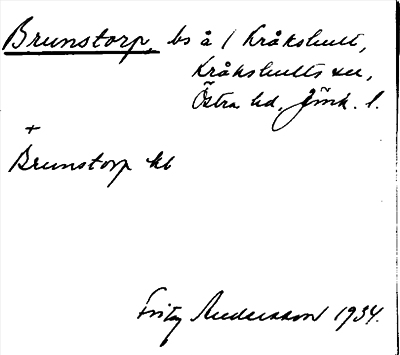 Brunstorp, bs å / Kråkshult,
Kråkshults sn,
Östra hd, Jönk. l.
+
Brunstorp kb
Fritz Andersson 1934.